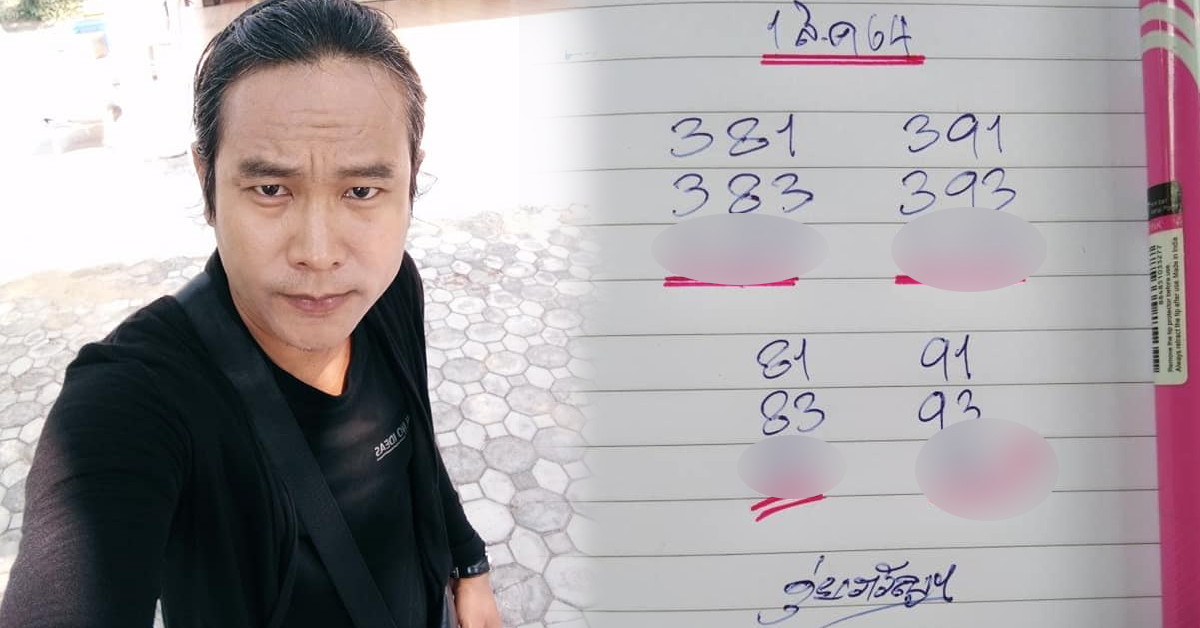 1 ส.ค 64
381 391
383 393
81 91
83 93
Remove the tip protector before use.
Always retract the tip after use. Made in India